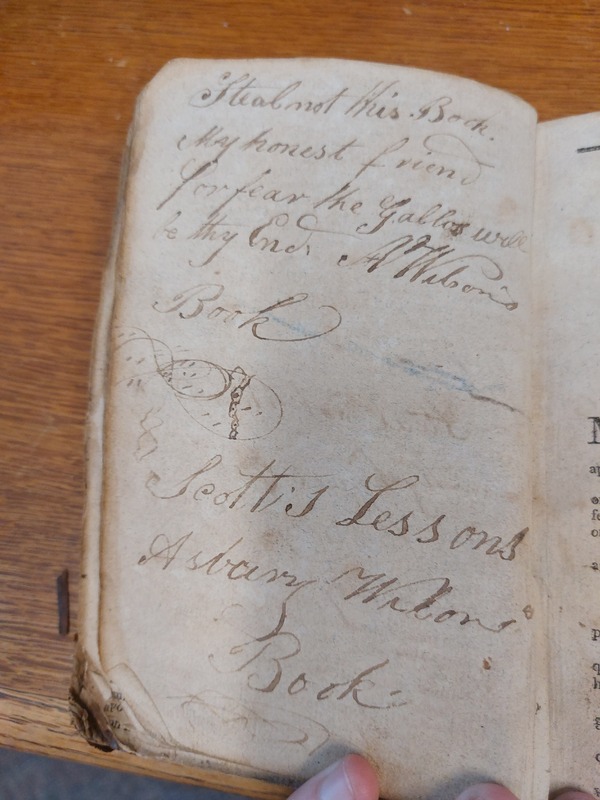 Steal not this Book.
My honest friend
for fear the Gallos will
be thy End. A Wilson's
Book
Scott's Lessons
Asbury Wilsons
Book